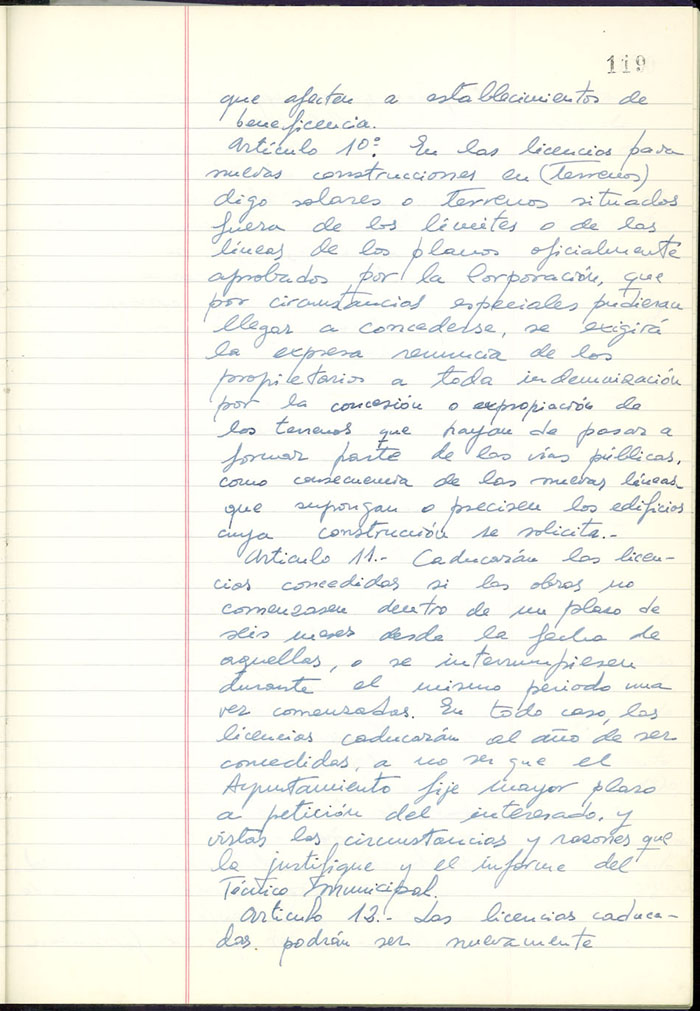 119
que afecten a establecimientos de
beneficencia.
Artículo 10º. En las licencias para
nuevas construcciones en (terrenos)
digo solares o terrenos situados
fuera de los límites o de las
líneas de los planos oficialmente
aprobados por la Corporación, que
por circunstancias especiales pudieran
llegar a concederse, se exigirá
la expresa renuncia de los
propietarios a toda indemnización
por la concesión o expropiación de
los terrenos que hayan de pasar a
formar parte de las vías públicas,
como consecuencia de las nuevas líneas
que supongan o precisen los edificios
cuya construcción se solicita.-
Artículo 11.- Caducarán las licen-
cias concedidas si las obras no
comenzasen dentro de un plazo de
seis meses desde la fecha de
aquellas, o se interrumpiesen
durante el mismo periodo una
vez comenzadas. En todo caso, las
licencias caducarán al año de ser
concedidas, a no ser que el
Ayuntamiento fije mayor plazo
a petición del interesado, y
vistas las circunstancias y razones que
la justifique y el informe del
Técnico Municipal.
Artículo 12.- Las licencias caduca-
das. podrán ser nuevamente